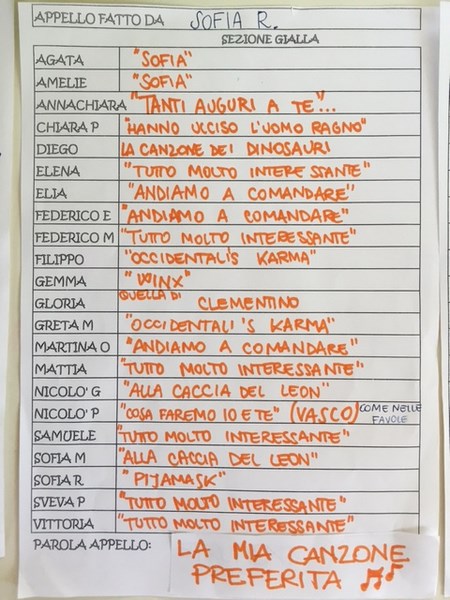 APPELLO FATTO DA SOFIA R.
SEZIONE GIALLA
AGATA "SOFIA"
AMELIE "SOFIA"
ANNACHIARA "TANTI AUGURI A TE"...
CHIARA P "HANNO UCCISO L'UOMO RAGNO"
DIEGO LA CANZONE DEI DINOSAURI
ELENA "TUTTO MOLTO INTERESSANTE"
ELIA "ANDIAMO A COMANDARE"
FEDERICO E "ANDIAMO A COMANDARE"
FEDERICO M "TUTTO MOLTO INTERESSANTE"
FILIPPO "OCCIDENTALI'S KARMA"
GEMMA "WINX"
GLORIA QUELLA DI CLEMENTINO
GRETA M "OCCIDENTALI'S KARMA"
MARTINA O "ANDIAMO A COMANDARE"
MATTIA "TUTTO MOLTO INTERESSANTE"
NICOLO' G "ALLA CACCIA DEL LEON"
NICOLO' P "COSA FAREMO IO E TE" (VASCO) COME NELLE FAVOLE
SAMUELE "TUTTO MOLTO INTERESSANTE"
SOFIA M "ALLA CACCIA DEL LEON"
SOFIA R "PIJAMASK"
SVEVA P "TUTTO MOLTO INTERESSANTE"
VITTORIA "TUTTO MOLTO INTERESSANTE"
PAROLA APPELLO: LA MIA CANZONE
PREFERITA